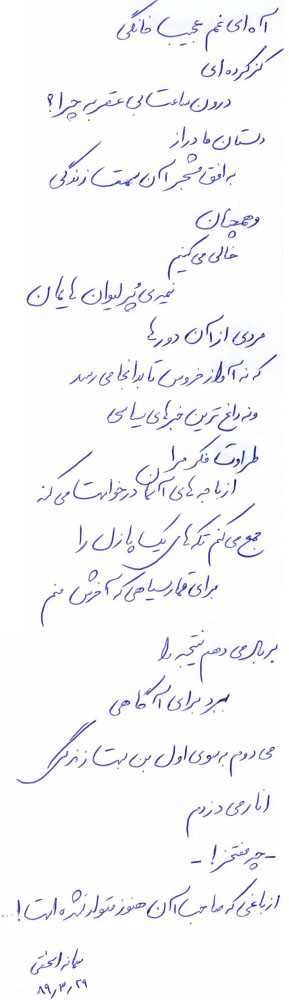 آه ای غم عجیب خانگی
کز کرده ای
درون ساعت بی عقربه چرا؟
دستان ما دراز
به افق مشجر آن سمت زندگی
و همچنان
خالی می کنیم
نیمه ی پُر لیوان هایمان
مردی از آن دورها
که نه آواز خروس تا بدانجا می رسد
و نه داغ ترین خبرهای سیاسی
طراوت فکر مرا
از باجه های آسمان درخواست می کند
جمع می کنم تکه های یک پازل را
برای قمار سیاهی که آخرش منم
بر باد می دهم نتیجه را
ببرد برای آگاهی
می دوم به سوی اول بن بست زندگی
انار می دزدم
- چه مفتخر! -
از باغی که صاحب آن هنوز متولد نشده است!...
سمانه
۸۹٫۳٫۲۹